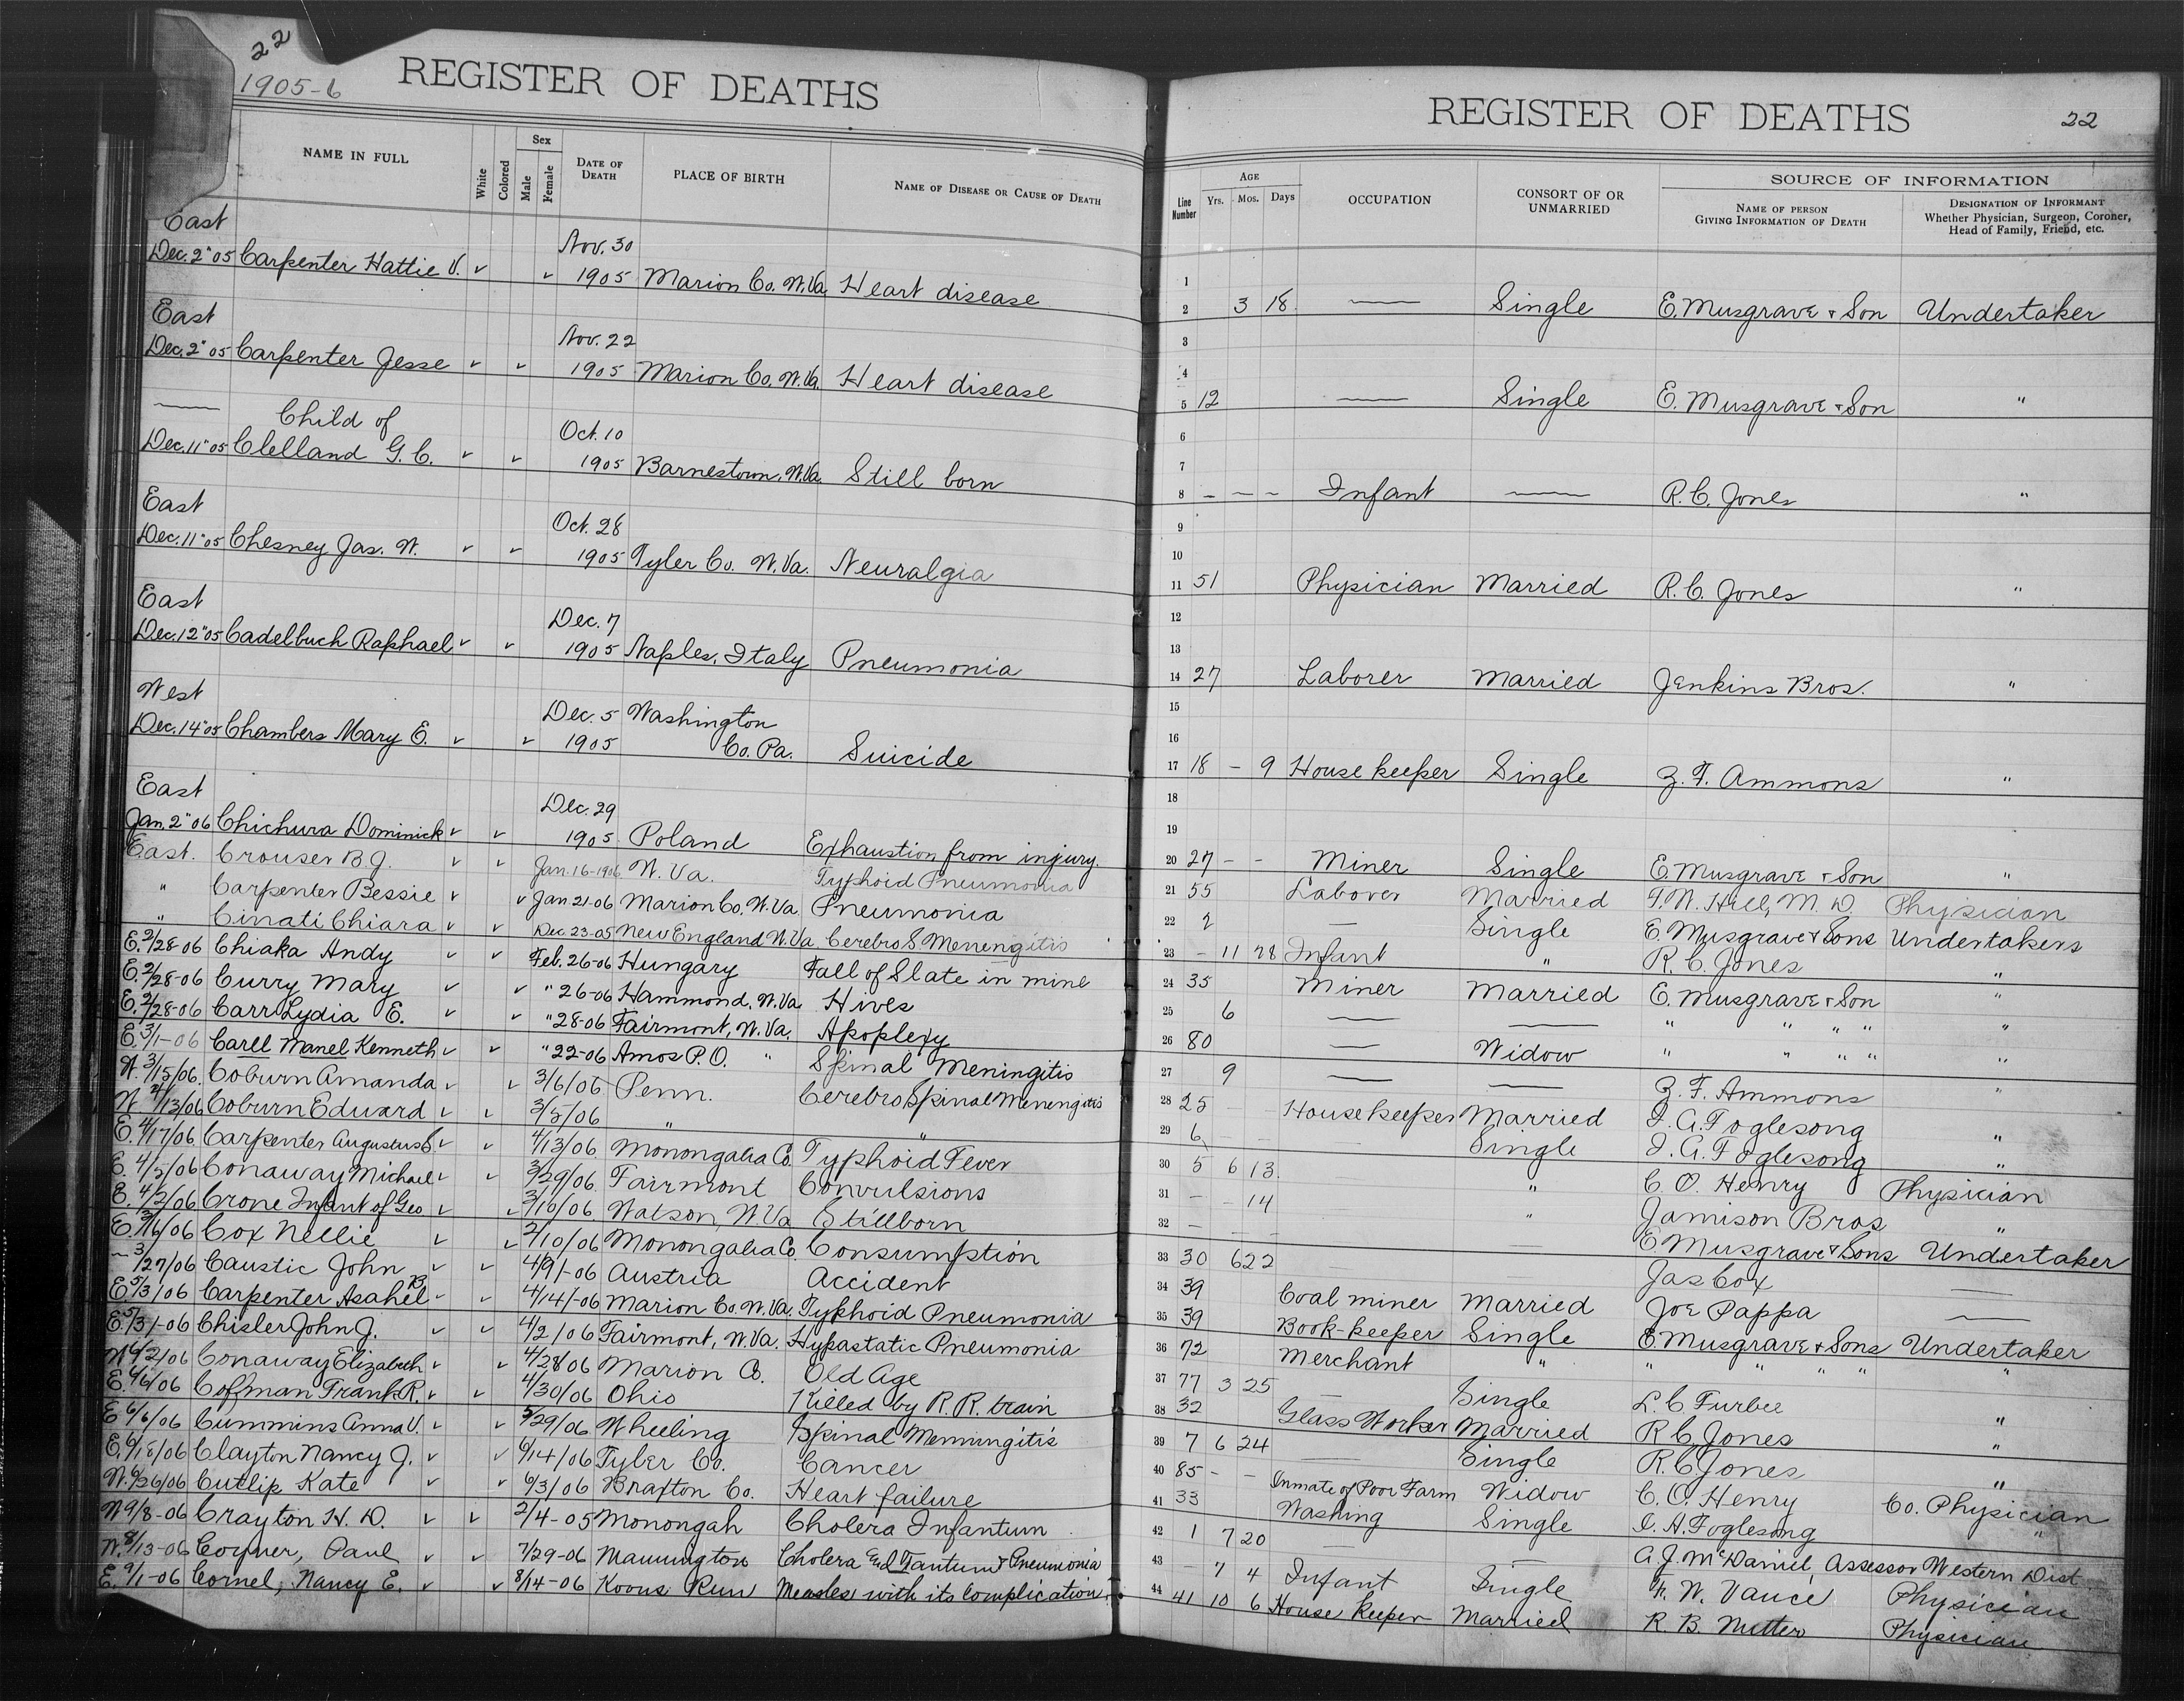 22
1905-6
REGISTER OF DEATHS
NAME IN FULL White Colored Sex Male Female DATE OF DEATH PLACE OF BIRTH NAME OF DISEASE OR CAUSE OF DEATH
East Nov. 30
Dec. 2" 05 Carpenter Hattie V. ✓ ✓ 1905 Marion Co. W.Va. Heart disease
East Nov. 22
Dec. 2" 05 Carpenter Jesse ✓ ✓ 1905 Marion Co. W.Va. Heart disease
— Child of Oct. 10
Dec. 11" 05 Clelland G. C. ✓ ✓ 1905 Barnestown, W.Va. Still born
East Oct. 28
Dec. 11" 05 Chesney Jas. W. ✓ ✓ 1905 Tyler Co. W.Va. Neuralgia
East Dec. 7
Dec. 12" 05 Cadelbuch Raphael ✓ ✓ 1905 Naples, Italy Pneumonia
West Dec. 5 Washington
Dec. 14" 05 Chambers Mary E. ✓ ✓ 1905 Co. Pa. Suicide
East Dec. 29
Jan. 2" 06 Chichura Dominick ✓ ✓ 1905 Poland Exhaustion from injury.
East. Crouser B. J. ✓ ✓ Jan. 16-1906 W. Va. Typhoid Pneumonia
" Carpenter Bessie ✓ ✓ Jan 21-06 Marion Co. W. Va Pneumonia
" Cinati Chiara ✓ ✓ Dec 23-05 New England W. Va. Cerebro S Menengitis
E. 2/28-06 Chiaka Andy ✓ ✓ Feb. 26-06 Hungary Fall of Slate in mine
E. 2/28-06 Curry Mary ✓ ✓ " 26-06 Hammond, W. Va Hives
E. 2/28-06 Carr Lydia E. ✓ ✓ " 28-06 Fairmont, W. Va. Apoplexy
E. 3/1-06 Carll Manel Kenneth ✓ ✓ " 22-06 Amos P.O. " Spinal Meningitis
W. 3/15/06. Coburn Amanda ✓ ✓ 3/6/06 Penn. Cerebro Spinal Menengitis
W 2/13/06 Coburn Edward ✓ ✓ 3/5/06 " "
E. 4/17/06 Carpenter Augustus C ✓ ✓ 4/13/06 Monongalia Co. Typhoid Fever
E. 4/2/06 Conaway Michael ✓ ✓ 3/29/06 Fairmont Convulsions
E. 4/2/06 Crone Infant of Geo. ✓ ✓ 3/16/06. Watson, W. Va Stillborn
E. 3/6/06 Cox Nellie ✓ ✓ 2/10/06 Monongalia Co. Consumption
— 3/27/06 Caustic John ✓ ✓ 4/9/-06 Austria Accident
E. 5/3/06 Carpenter Asahel B. ✓ ✓ 4/14/-06 Marion Co. W. Va. Typhoid Pneumonia
E. 5/31-06 Chisler John J. ✓ ✓ 4/2/06 Fairmont, W. Va. Hypastatic Pneumonia
W 6/2/06 Conaway Elizabeth ✓ ✓ 4/28/06 Marion Co. Old Age
E. 6/6/06 Coffman Frank R. ✓ ✓ 4/30/06 Ohio Killed by R. R. train
E 6/6/06 Cummins Anna V. ✓ ✓ 5/29/06 Wheeling Spinal Menningitis
E. 6/18/06 Clayton Nancy J. ✓ ✓ 6/14/06 Tyler Co. Cancer
W. 6/26/06 Cutlip Kate ✓ ✓ 6/3/06 Braxton Co. Heart failure
W 9/8-06 Crayton H. D. ✓ ✓ 2/4-05 Monongah Cholera Infantum
W. 8/13-06 Coyner, Paul ✓ ✓ 7/29-06 Mannington Cholera Infantum & Pneumonia
E. 9/1-06 Cornel, Nancy E. ✓ ✓ 8/14-06 Koons Run Measles with its Complication.
REGISTER OF DEATHS 22
Line Number AGE Yrs. Mos. Days OCCUPATION CONSORT OF OR UNMARRIED SOURCE OF INFORMATION
NAME OF PERSON GIVING INFORMATION OF DEATH
DESIGNATION OF INFORMANT Whether Physician, Surgeon, Coroner, Head of Family, Friend, etc.
1
2 3 18. — Single E. Musgrave & Son Undertaker
3
4
5 12 — Single E. Musgrave & Son "
6
7
8 – – – Infant — R. C. Jones "
9
10
11 51 Physician Married R. C. Jones "
12
13
14 27 Laborer Married Jenkins Bros. "
15
16
17 18 – 9 House keeper Single Z. F. Ammons "
18
19
20 27 – – Miner Single E. Musgrave & Son "
21 55 Laborer Married F. W. Hill, M. D. Physician
22 2 — Single E. Musgrave & Sons Undertakers
23 – 11 28 Infant " R. C. Jones "
24 35 Miner Married E. Musgrave & Son "
25 6 — — " " " " "
26 80 — Widow " " " " "
27 9 — — Z. F. Ammons "
28 25 – House keeper Married I. A. Foglesong
29 6 – – — Single I. A. Foglesong "
30 5 6 13. " C. O. Henry Physician
31 – – 14 " Jamison Bros "
32 – – – — — E Musgrave & Sons Undertaker
33 30 6 22 — — Jas Cox —
34 39 Coal miner Married Joe Pappa —
35 39 Book-keeper Single E. Musgrave & Sons Undertaker
36 72 Merchant " " " " " "
37 77 3 25 — Single L. C. Furbee "
38 32 Glass Worker Married R C Jones "
39 7 6 24 — Single R. C Jones "
40 85 – – Inmate of Poor Farm Widow C. O. Henry Co. Physician
41 33 Washing Single I. A. Foglesong "
42 1 7 20 — — A. J. McDaniel, Assessor Western Dist.
43 – 7 4 Infant Single F. W. Vance Physician
44 41 10 6 House keeper Married R. B. Nutter Physician